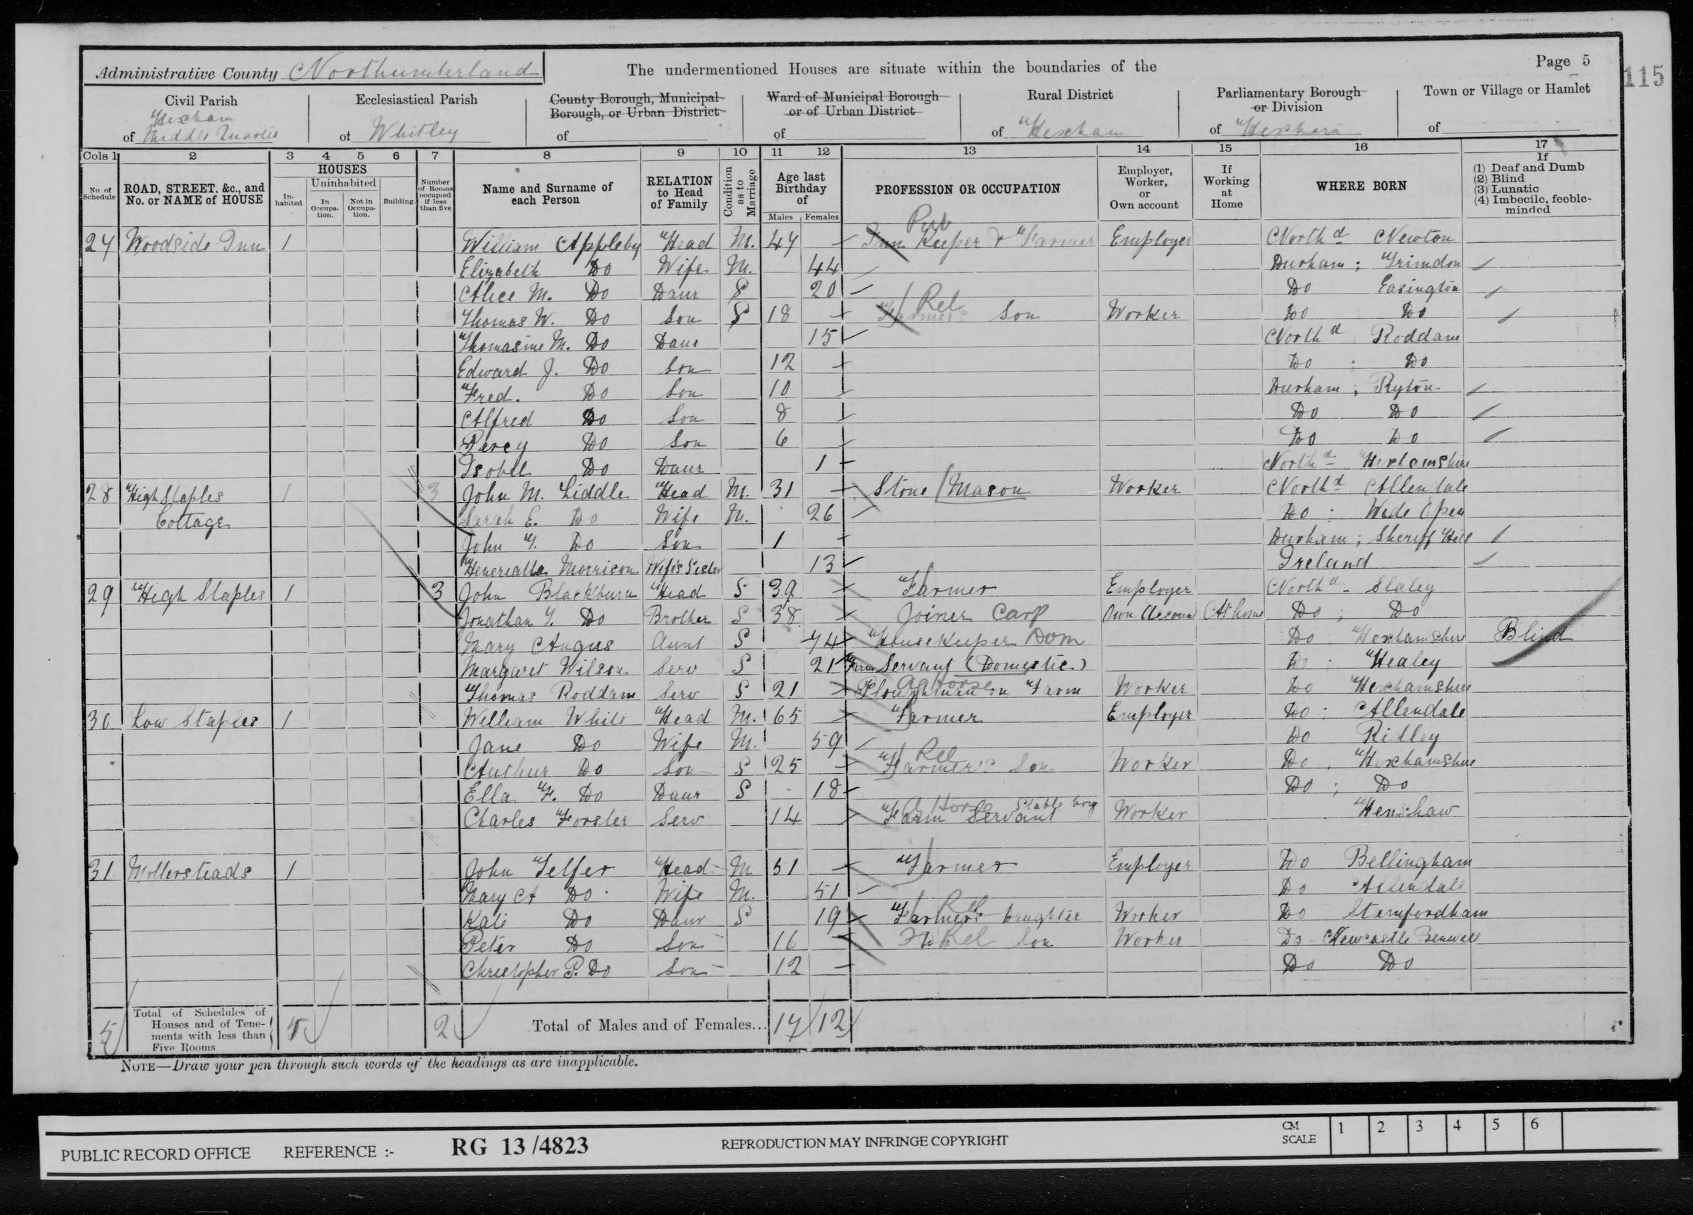 Administrative County Northumberland
The undermentioned Houses are situate within the boundaries of the
Page 5
115
Civil Parish
Ecclesiastical Parish
County Borough, Municipal
Borough, or Urban District
Ward of Municipal Borough
or of Urban District
Rural District
Parliamentary Borough
or Division
Town or Village or Hamlet
of Hexham
Middle Quarter
of Whitley
of
of
of Hexham
of Hexham
of
Cols 1 2 3 4 5 6 7 8 9 10 11 12 13 14 15 16 17
No of Schedule
ROAD, STREET, &c., and No. or NAME of HOUSE
HOUSES
Inhabited
Uninhabited
In Occupation.
Not in Occupation.
Building
Number of Rooms occupied if less than five
Name and Surname of each Person
RELATION to Head of Family
Condition as to Marriage
Age last Birthday of
Males Females
PROFESSION OR OCCUPATION
Employer, Worker, or Own account
If Working at Home
WHERE BORN
If
(1) Deaf and Dumb
(2) Blind
(3) Lunatic
(4) Imbecile, feeble-minded
Pub
27 Woodside Inn 1 William Appleby Head M. 47 Inn Keeper & Farmer Employer North'd Newton
Elizabeth Do Wife M. 44 Durham; Trimdon
Alice M. Do Daur S 20 Do Easington
Rel
Thomas W. Do Son S 18 Farmer's Son Worker Do Do
Thomasine M. Do Daur 15 North'd Roddam
Edward J. Do Son 12 Do : Do
Fred. Do Son 10 Durham; Ryton
Alfred Do Son 8 Do Do
Percy Do Son 6 Do Do
Isobel Do Daur 1 North'd Hexhamshire
28 High Staples 1 3 John M. Liddle Head M. 31 Stone / Mason Worker North'd Allendale
Cottage Sarah E. Do Wife M. 26 Do : Wide Open
John Do Son 1 Durham; Sheriff Hill
Morrison Wife's Sister 13 Ireland
29 High Staples 1 3 John Blackburn Head S 39 Farmer Employer North'd Slaley
Jonathan Do Brother S 38 Joiner Carp Own Account At home Do ; Do
Mary Angus Aunt S 74 Housekeeper Dom Do Hexhamshire Blind
Margaret Wilson Serv S 21 Farm Servant (Domestic) Do : Healey
on horse
Thomas Roddam Serv S 21 Ploughman on Farm Worker Do Hexhamshire
30 Low Staples 1 William White Head M. 65 Farmer Employer Do : Allendale
Jane Do Wife M. 59 Do Ridley
Rel
Arthur Do Son S 25 Farmer's Son Worker Do . Hexhamshire
Ella F. Do Daur S 18 Do ; Do
Horse Stable boy
Charles Forster Serv 14 Farm Servant Worker Henshaw
31 Mollersteads 1 John Telfer Head M 51 Farmer Employer Do Bellingham
Mary A Do Wife M. 51 Do Allendale
Rel
Kate Do Daur S 19 Farmer's Daughter Worker Do Stamfordham
Peter Do Son 16 Do Rel Son Worker Do Newcastle Benwell
Christopher P. Do Son 12 Do Do
5 Total of Schedules of Houses and of Tenements with less than Five Rooms 5 2 Total of Males and of Females... 17 12
NOTE—Draw your pen through such words of the headings as are inapplicable.
PUBLIC RECORD OFFICE REFERENCE :- RG 13/4823 REPRODUCTION MAY INFRINGE COPYRIGHT CM SCALE 1 2 3 4 5 6